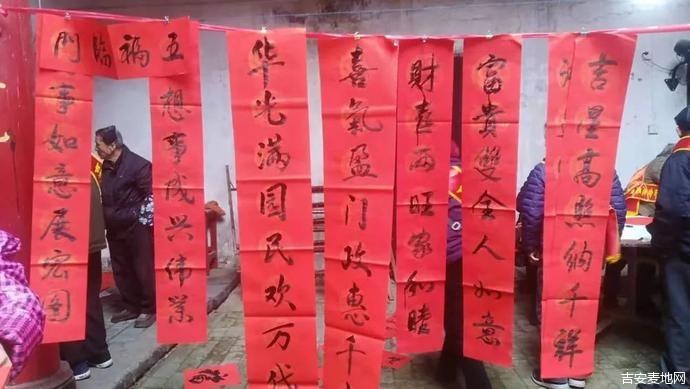 吉星高照納千祥
富貴雙全人如意
財喜两旺家和睦
喜氣盈门政惠千
华光满园民欢万代
五福临門
想事成兴伟業
事如意展宏图
吉安麦地网